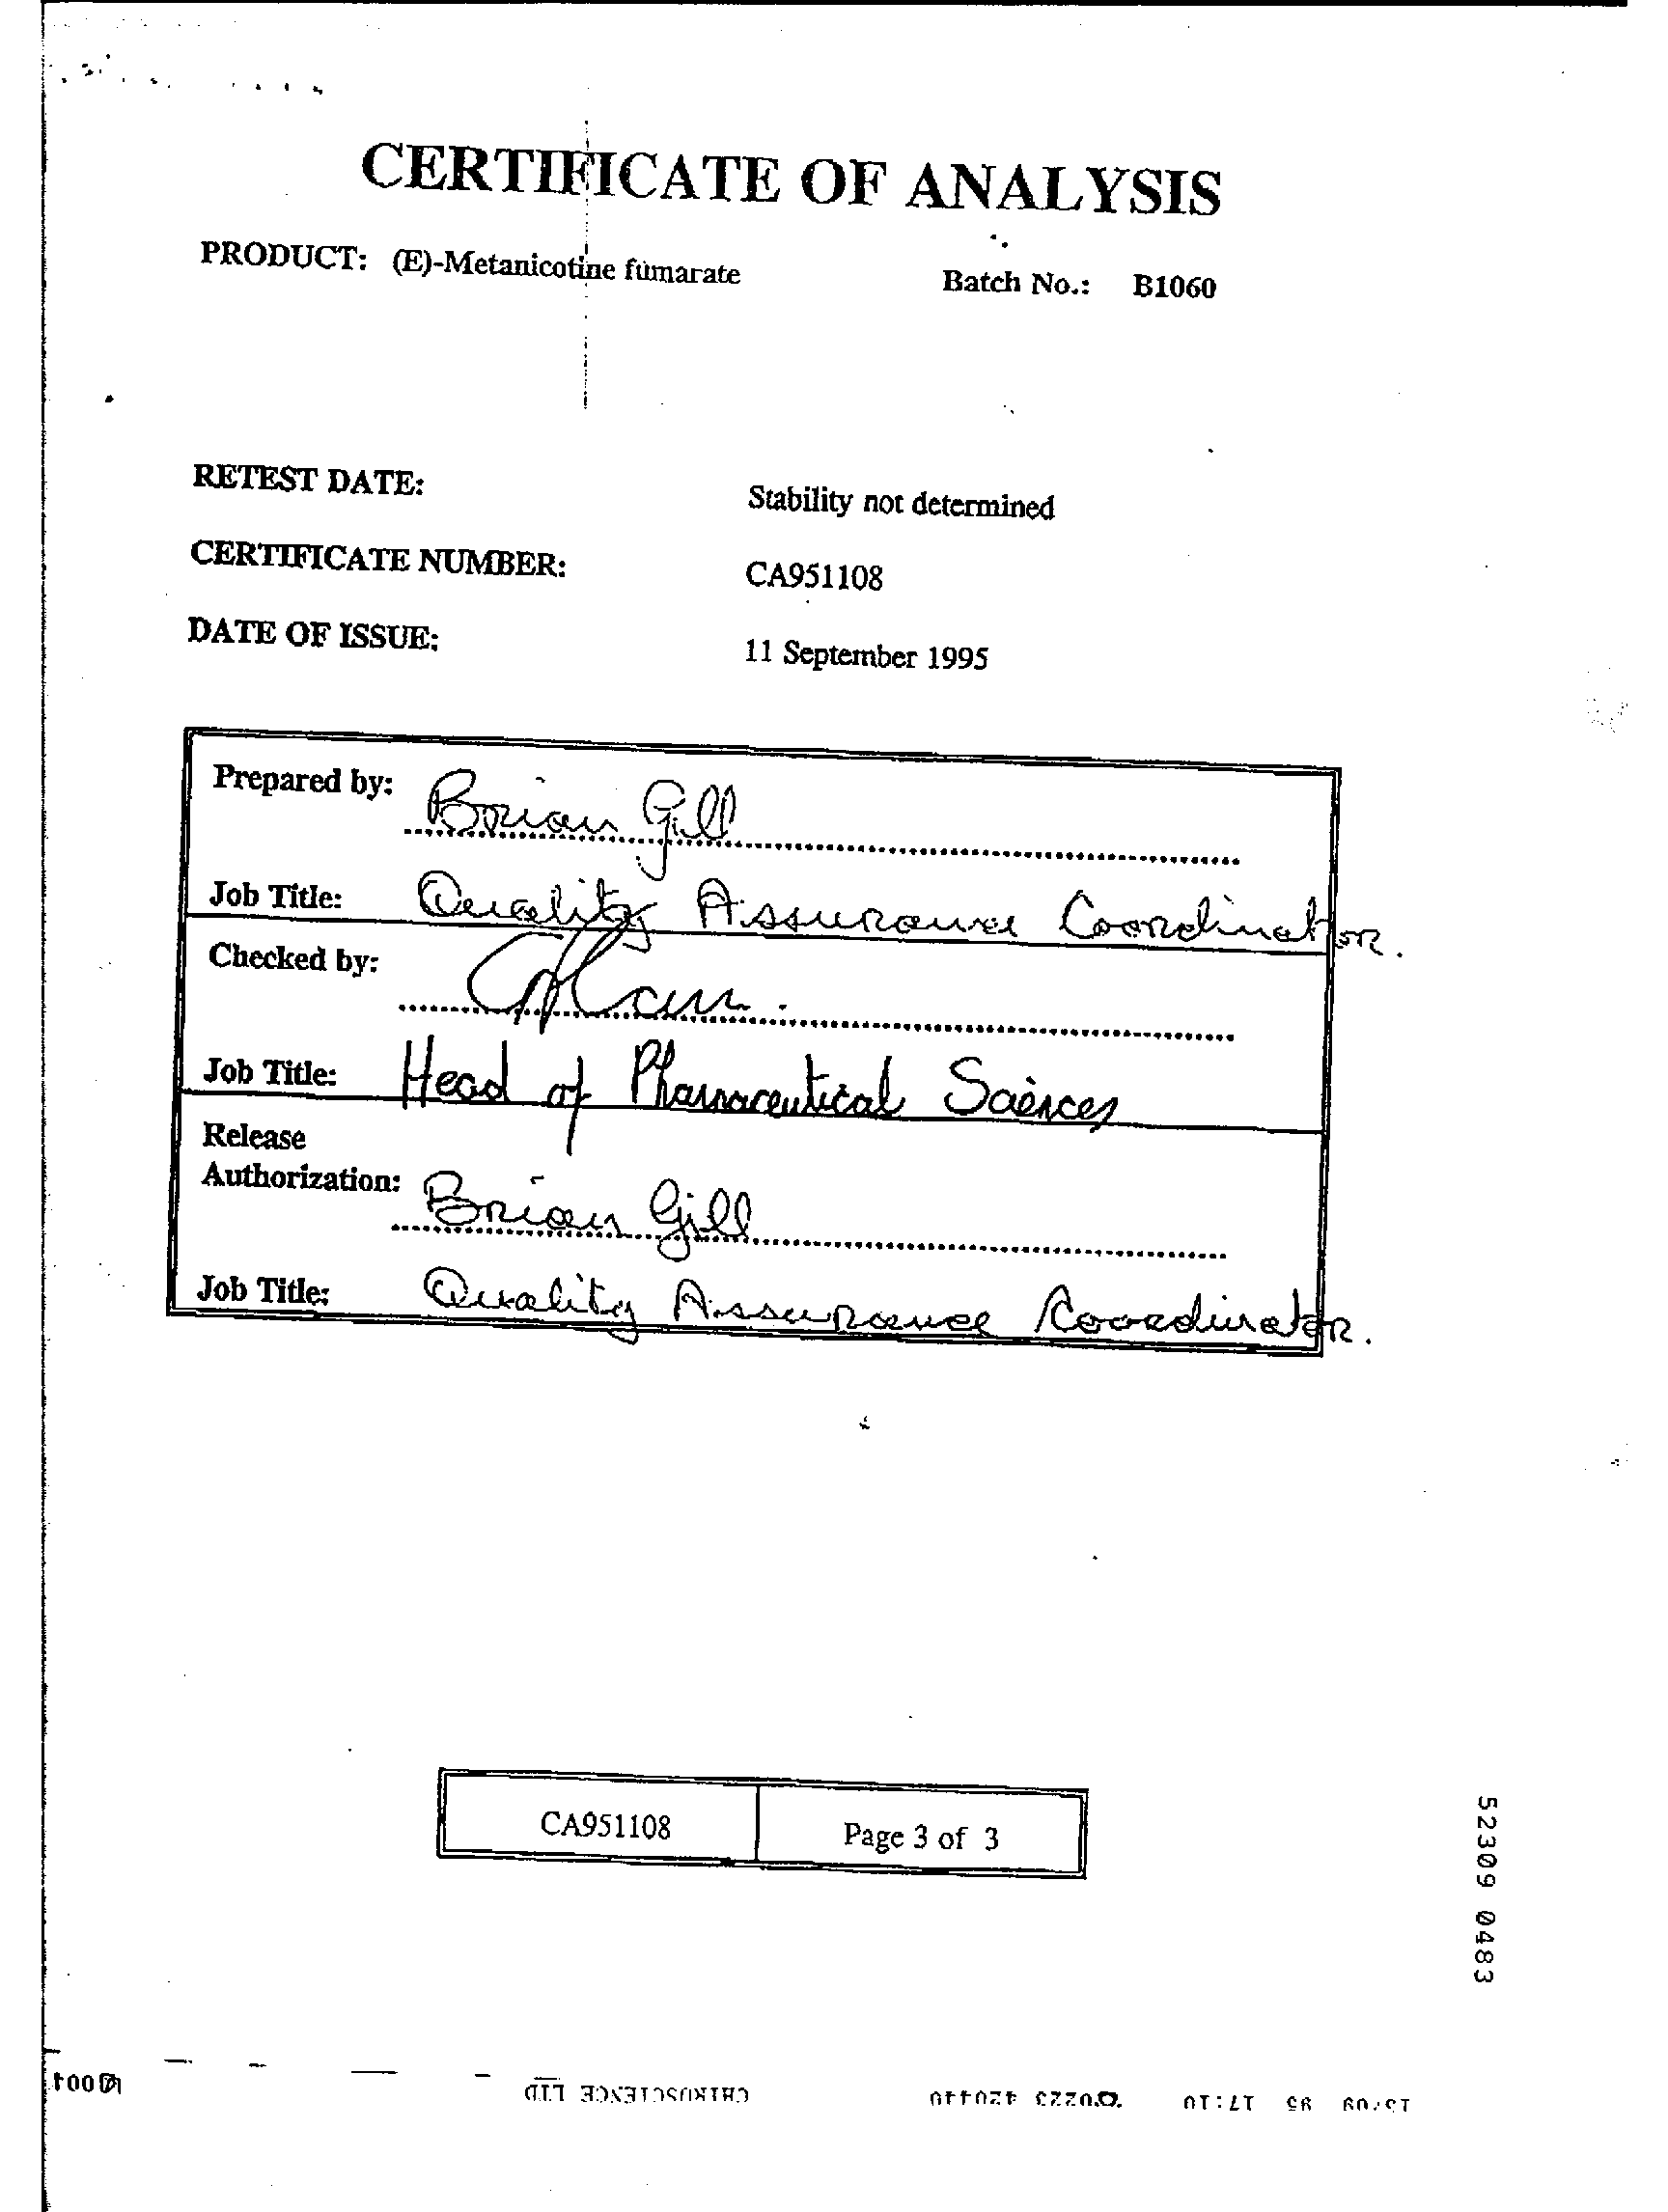 CERTIFICATE OF ANALYSIS
PRODUCT: (E)-Metanicotine fumarate Batch No.: B1060
RETEST DATE: Stability not determined
CERTIFICATE NUMBER: CA951108
DATE OF ISSUE: 11 September 1995
Prepared by: Brian Gill
Job Title: Quality Assurance Coordinator.
Checked by:
Job Title: Head of Pharmaceutical Sciences
Release
Authorization: Brian Gill
Job Title: Quality Assurance Coordinator.
CA951108 Page 3 of 3
52309 0483
15/09 95 17:10 CHIROSCIENCE LTD